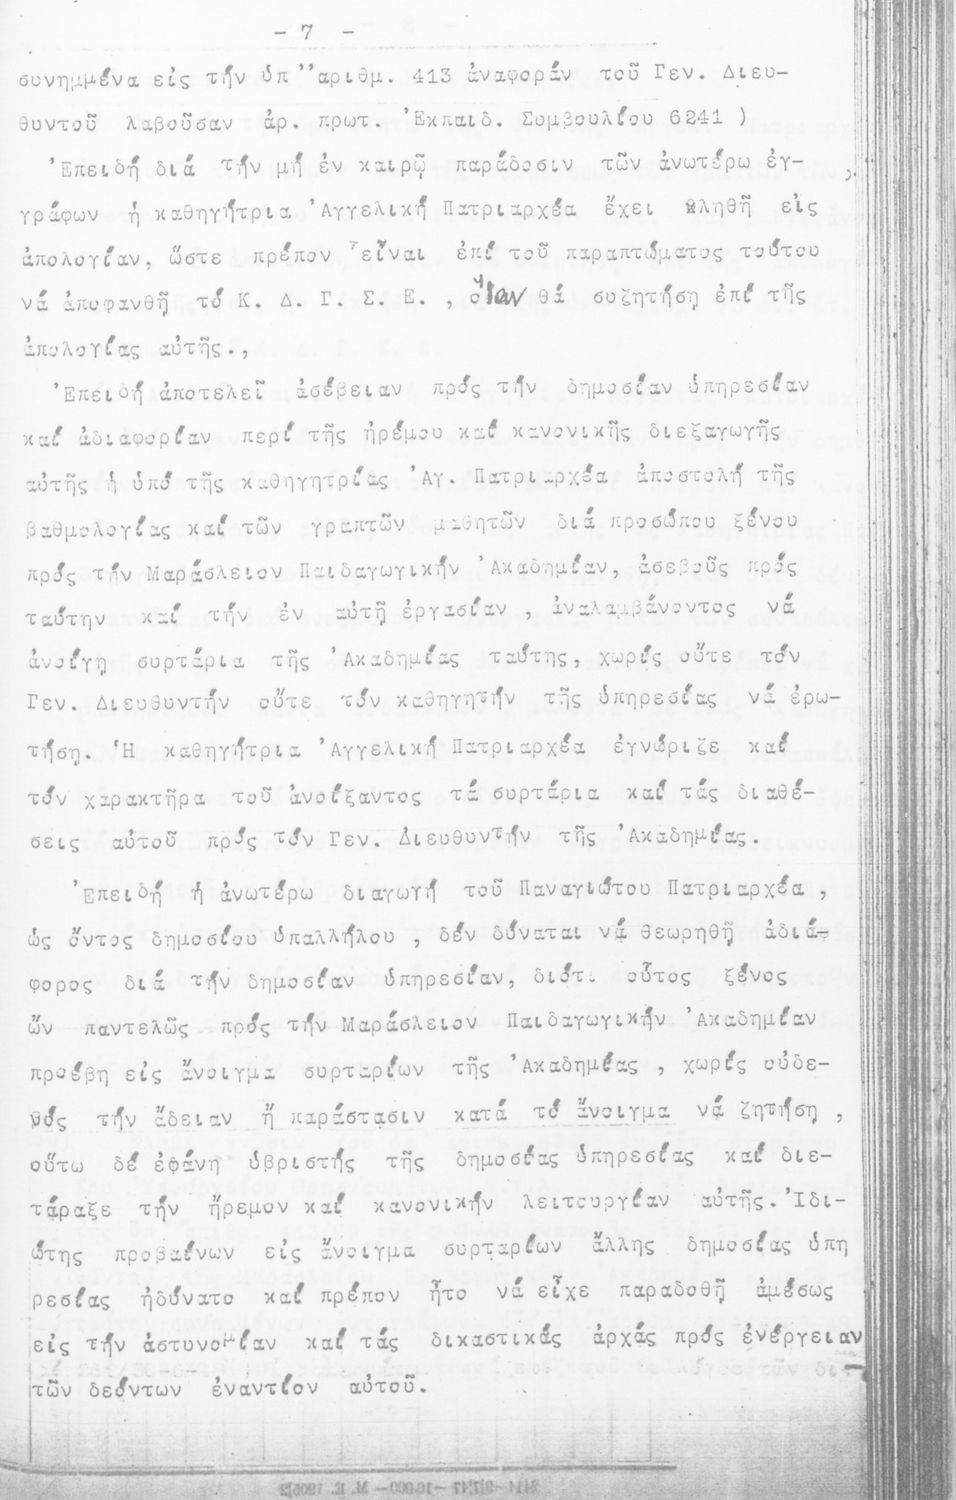 - 7 -
συνημμένα εἰς τήν ὑπ'' ἀριθμ. 413 ἀναφοράν τοῦ Γεν. Διευ-
θυντοῦ λαβοῦσαν ἀρ. πρωτ. Ἐκπαιδ. Συμβουλίου 6241 )
Ἐπειδή διά τήν μή ἐν καιρῷ παράδοσιν τῶν ἀνωτέρω ἐγ-
γράφων ἡ καθηγήτρια Ἀγγελική Πατριαρχέα ἔχει κληθῆ εἰς
ἀπολογίαν, ὥστε πρέπον εἶναι ἐπί τοῦ παραπτώματος τούτου
νά ἀποφανθῇ τό Κ. Δ. Γ. Σ. Ε. , ὅταν θά συζητήσῃ ἐπί τῆς
ἀπολογίας αὐτῆς.,
Ἐπειδή ἀποτελεῖ ἀσέβειαν πρός τήν δημοσίαν ὑπηρεσίαν
καί ἀδιαφορίαν περί τῆς ἠρέμου καί κανονικῆς διεξαγωγῆς
αὐτῆς ἡ ὑπό τῆς καθηγητρίας Ἀγ. Πατριαρχέα ἀποστολή τῆς
βαθμολογίας καί τῶν γραπτῶν μαθητῶν διά προσώπου ξένου
πρός τήν Μαράσλειον Παιδαγωγικήν Ἀκαδημίαν, ἀσεβοῦς πρός
ταύτην καί τήν ἐν αὐτῇ ἐργασίαν , ἀναλαμβάνοντος νά
ἀνοίγῃ συρτάρια τῆς Ἀκαδημίας ταύτης, χωρίς οὔτε τόν
Γεν. Διευθυντήν οὔτε τόν καθηγητήν τῆς ὑπηρεσίας νά ἐρω-
τήσῃ. Ἡ καθηγήτρια Ἀγγελική Πατριαρχέα ἐγνώριζε καί
τόν χαρακτῆρα τοῦ ἀνοίξαντος τά συρτάρια καί τάς διαθέ-
σεις αὐτοῦ πρός τόν Γεν. Διευθυντήν τῆς Ἀκαδημίας.
Ἐπειδή ἡ ἀνωτέρω διαγωγή τοῦ Παναγιώτου Πατριαρχέα ,
ὡς ὄντος δημοσίου ὑπαλλήλου , δέν δύναται νά θεωρηθῇ ἀδιά-
φορος διά τήν δημοσίαν ὑπηρεσίαν, διότι οὗτος ξένος
ὤν παντελῶς πρός τήν Μαράσλειον Παιδαγωγικήν Ἀκαδημίαν
προέβη εἰς ἄνοιγμα συρταρίων τῆς Ἀκαδημίας , χωρίς οὐδε-
νός τήν ἄδειαν ἤ παράστασιν κατά τό ἄνοιγμα νά ζητήσῃ ,
οὕτω δέ ἐφάνη ὑβριστής τῆς δημοσίας ὑπηρεσίας καί διε-
τάραξε τήν ἤρεμον καί κανονικήν λειτουργίαν αὐτῆς. Ἰδι-
ώτης προβαίνων εἰς ἄνοιγμα συρταρίων ἄλλης δημοσίας ὑπη
ρεσίας ἠδύνατο καί πρέπον ἦτο νά εἶχε παραδοθῇ ἀμέσως
εἰς τήν ἀστυνομίαν καί τάς δικαστικάς ἀρχάς πρός ἐνέργειαν
τῶν δεόντων ἐναντίον αὐτοῦ.